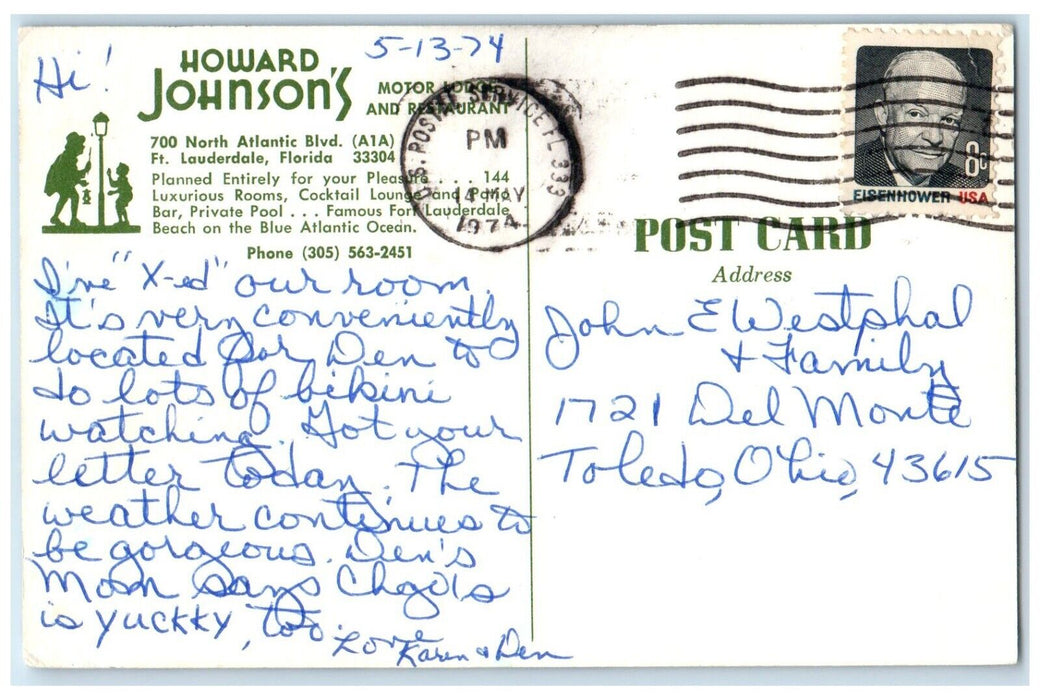 Hi!
5-13-74
HOWARD
JOHNSON'S
MOTOR LODGE
AND RESTAURANT
700 North Atlantic Blvd. (A1A)
Ft. Lauderdale, Florida 33304
Planned Entirely for your Pleasure . . . 144
Luxurious Rooms, Cocktail Lounge and Patio
Bar, Private Pool . . . Famous Fort Lauderdale
Beach on the Blue Atlantic Ocean.
Phone (305) 563-2451
I've "X-ed" our room.
It's very conveniently
located for Den to
do lots of bikini
watching. Got your
letter today. The
weather continues to
be gorgeous. Den's
Mom says Chgo's
is yuckky, too.
Love
Karen & Den
U.S. POSTAL SERVICE FL 333
PM
14 MAY
1974
8c
EISENHOWER USA
POST CARD
Address
John E Westphal
+ Family
1721 Del Monte
Toledo, Ohio, 43615